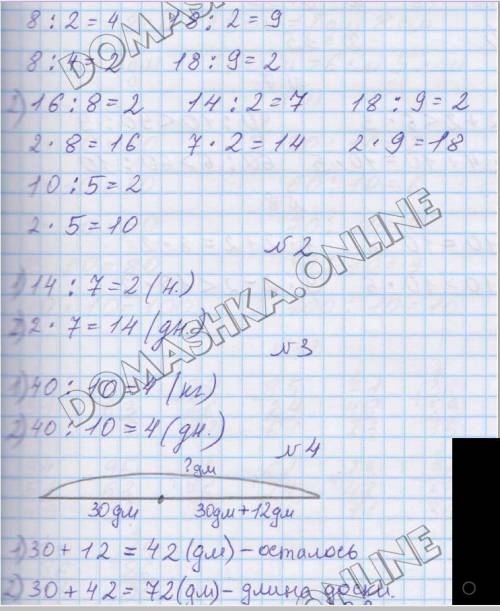 8 : 2 = 4 18 : 2 = 9
8 : 4 = 2 18 : 9 = 2
2) 16 : 8 = 2 14 : 2 = 7 18 : 9 = 2
2 · 8 = 16 7 · 2 = 14 2 · 9 = 18
10 : 5 = 2
2 · 5 = 10
№2
1) 14 : 7 = 2 (н.)
2) 2 · 7 = 14 (дн.)
№3
1) 40 : 10 = 4 (кг)
2) 40 : 10 = 4 (дн.)
№4
? дм
30 дм 30 дм + 12 дм
1) 30 + 12 = 42 (дм) - осталось
2) 30 + 42 = 72 (дм) - длина доски.
DOMASHKA.ONLINE
DOMASHKA.ONLINE